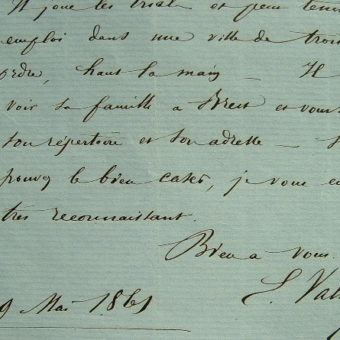 Il joue les trial et peut tenir
emploi dans une ville de trois
ordre, haut la main — Il
voir sa famille a Brest et vous
son répertoire et son adresse —
pouvez le bien caser, je vous
très reconnaissant.
Bien a vous.
9 Mai 1861